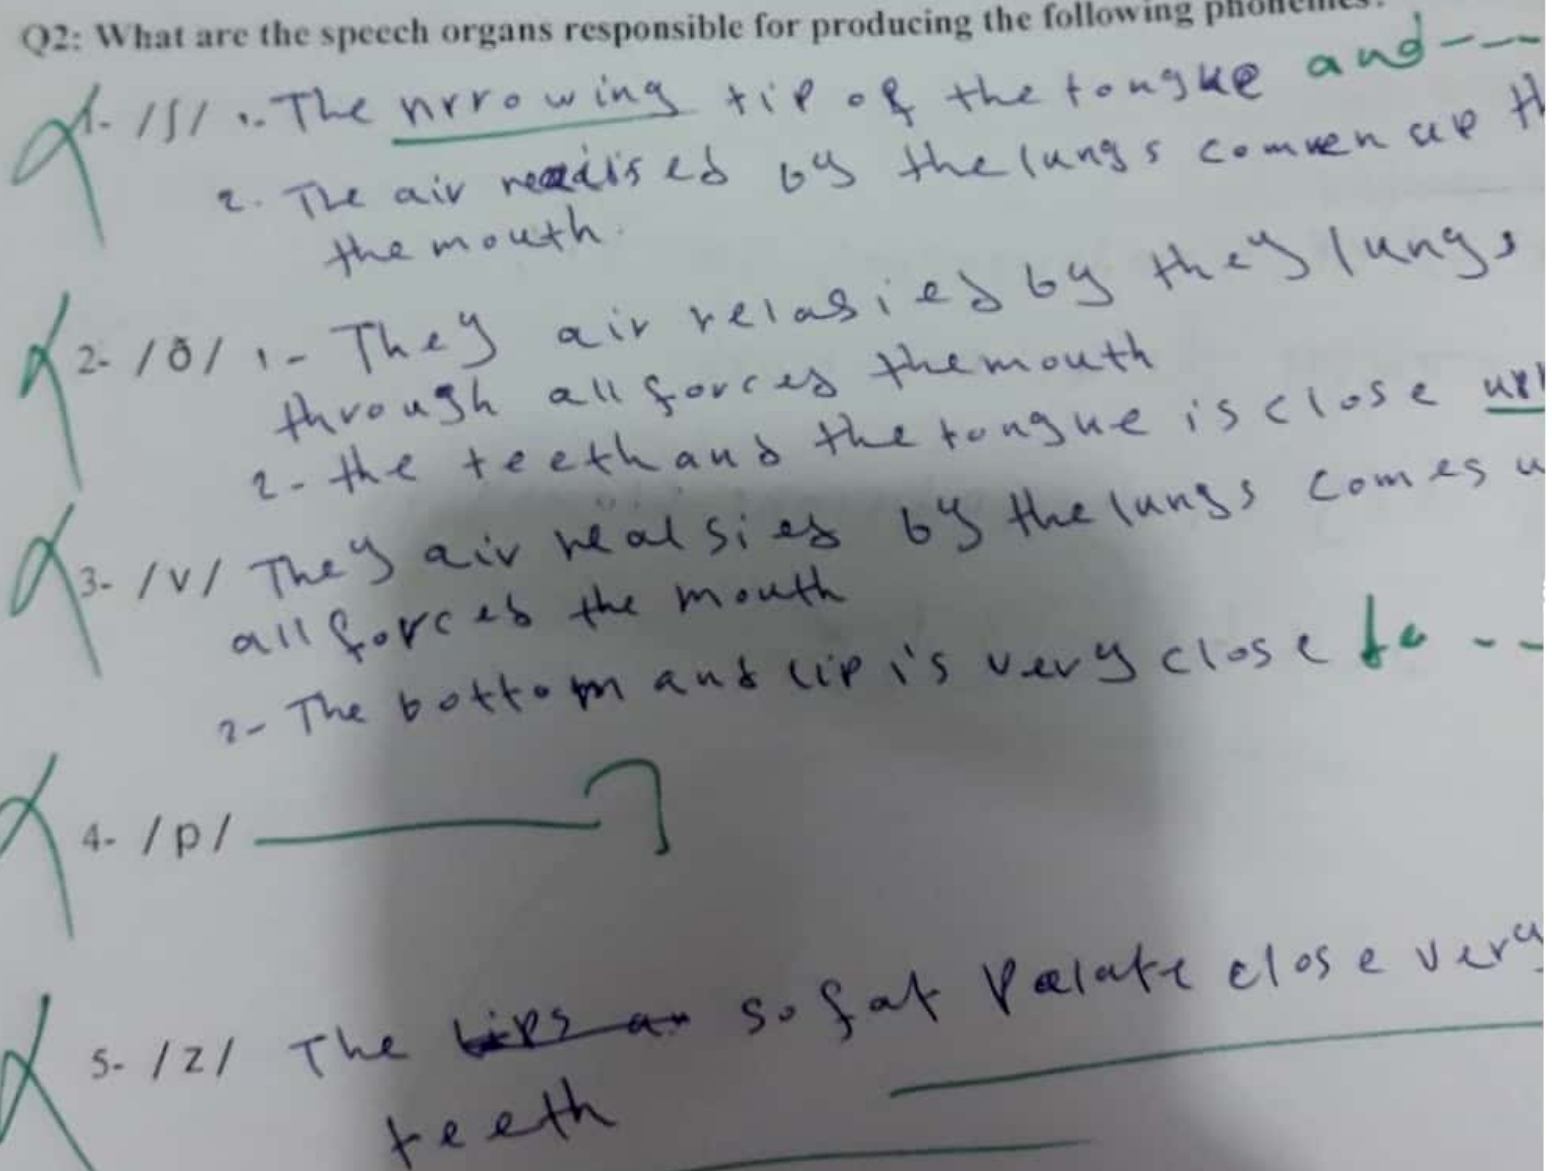 Q2: What are the speech organs responsible for producing the following phonemes?
1- /ʃ/ 1. The nrrowing tip of the tongue and ----
2. The air by the lungs comen up
the mouth.
2- /ð/ 1- They air relasied by they lungs
through all forces the mouth
2- the teeth and the tongue is close
3- /v/ They air realsies by the lungs comes
all forces the mouth
2- The bottom and lip is very close to --
4- /p/ ?
5- /z/ The sofat Palate close very
teeth